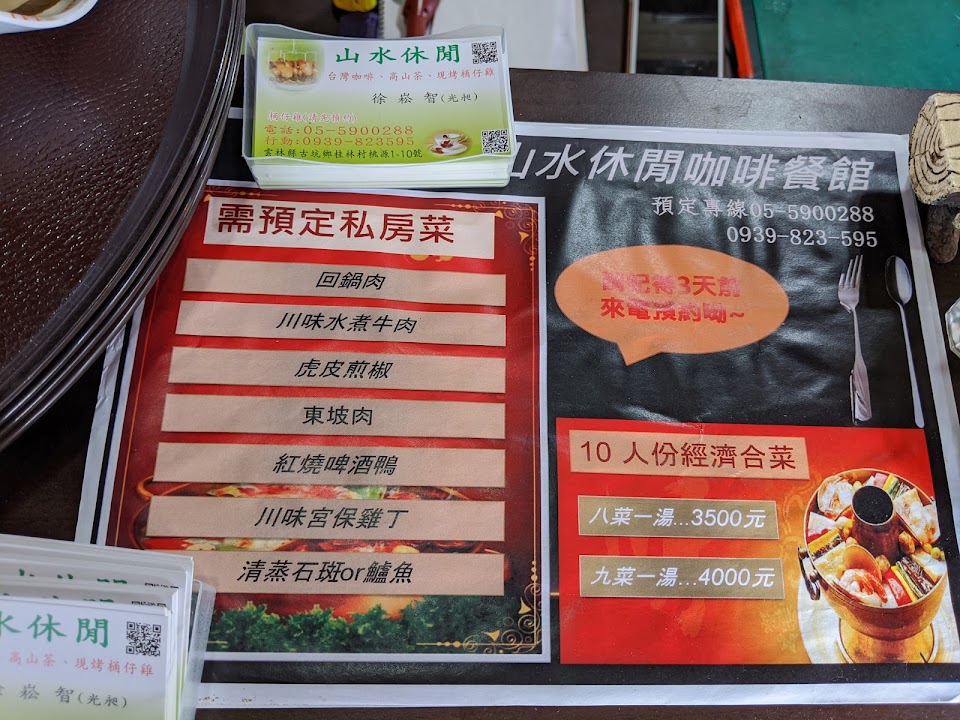 山水休閒
台灣咖啡、高山茶、現烤桶仔雞
徐崧智(光昶)
桶仔雞(請先預約)
電話:05-5900288
行動:0939-823595
雲林縣古坑鄉桂林村桃源1-10號
山水休閒咖啡餐館
預定專線05-5900288
0939-823-595
需預定私房菜
回鍋肉
川味水煮牛肉
虎皮煎椒
東坡肉
紅燒啤酒鴨
川味宮保雞丁
清蒸石斑or鱸魚
請記得3天前
來電預約呦~
10 人份經濟合菜
八菜一湯...3500元
九菜一湯...4000元
水休閒
高山茶、現烤桶仔雞
崧智(光昶)